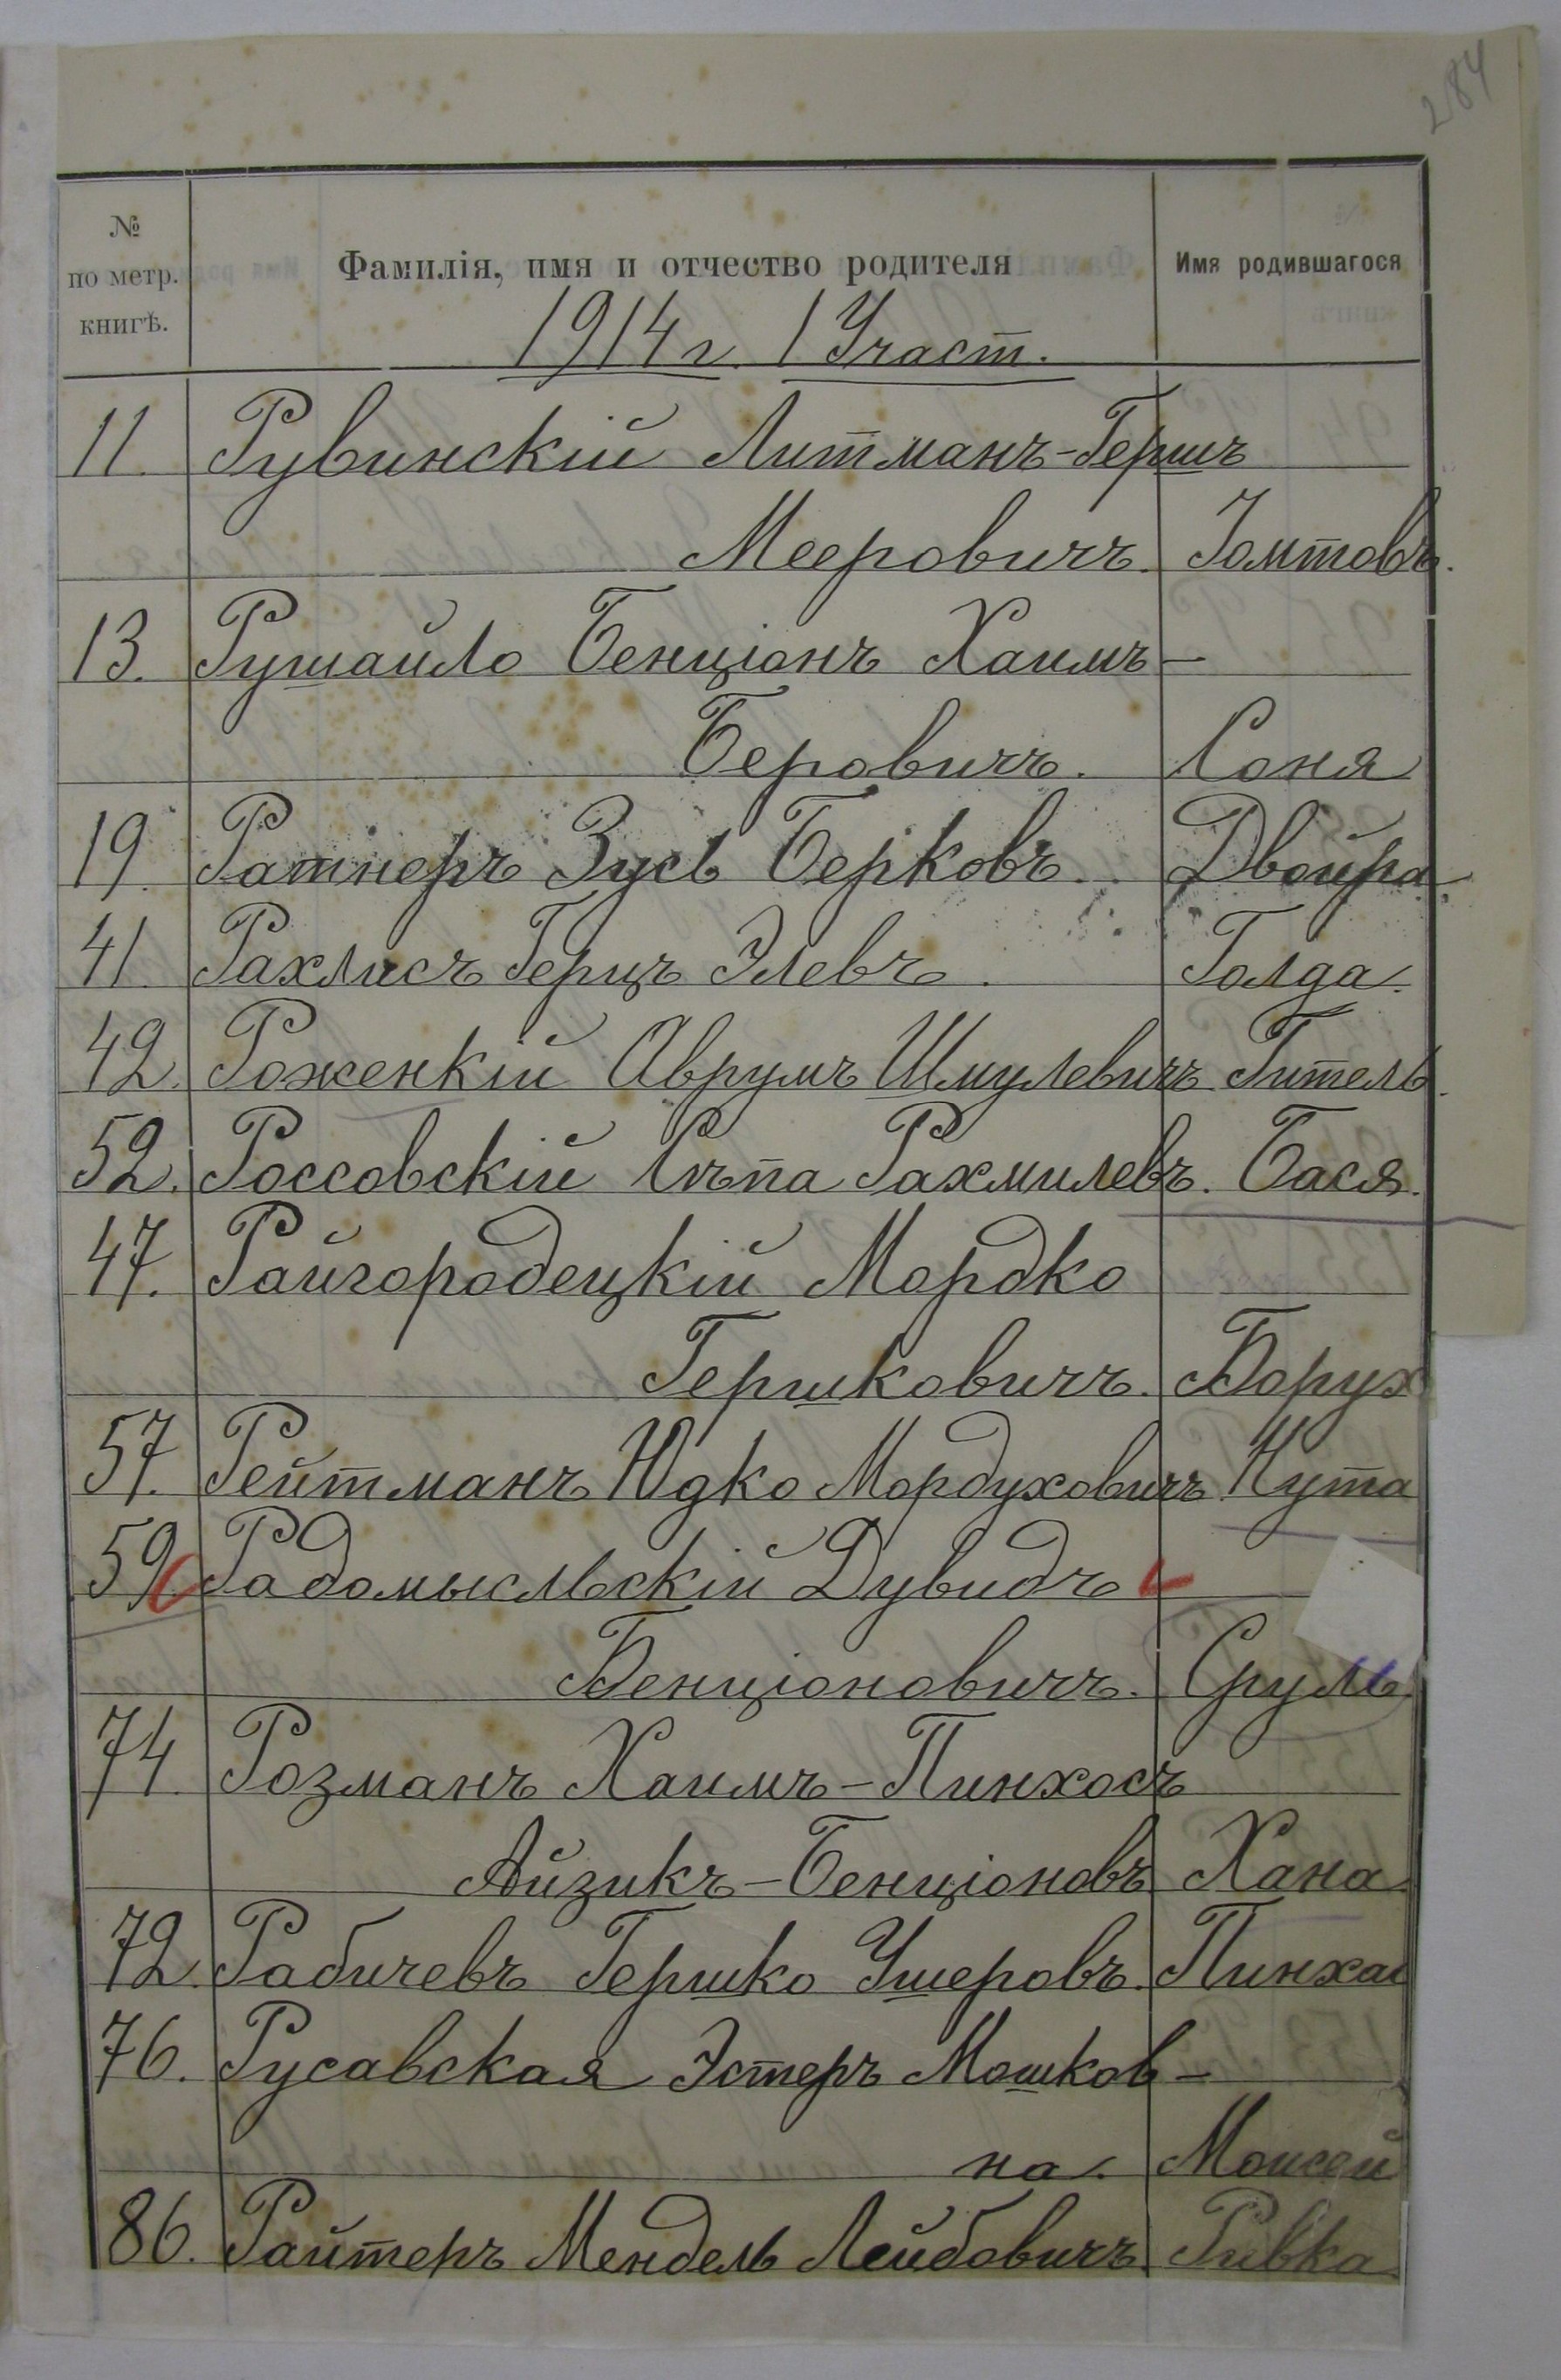 284
№ по метр. книгѣ. Фамилія, имя и отчество родителя Имя родившагося
1914 г. 1 Участ.
11. Рувинскій Литманъ-Гершъ
Мееровичъ. Іомтовъ.
13. Рушайло Бенціонъ Хаимъ-
Беровичъ. Соня
19. Ратнеръ Зусь Берковъ. Двойра
41. Рахлисъ Герцъ Элевъ. Голда.
42. Роженкій Аврумъ Шмулевичъ Гитель.
52. Россовскій Рахмилевъ. Бася.
47. Райгородецкій Мордко
Гершковичъ. Борух
57. Рейтманъ Юдко Мордуховичъ Нута
59. Радомысльскій Дувидъ
Бенціоновичъ. Сруль
74. Розманъ Хаимъ-Пинхосъ
Айзикъ-Бенціоновъ Хана
72. Рабичевъ Гершко Ушеровъ. Пинхас
76. Русавская Эстеръ Мошков-
на. Моисей
86. Райтеръ Мендель Лейбовичъ. Ривка